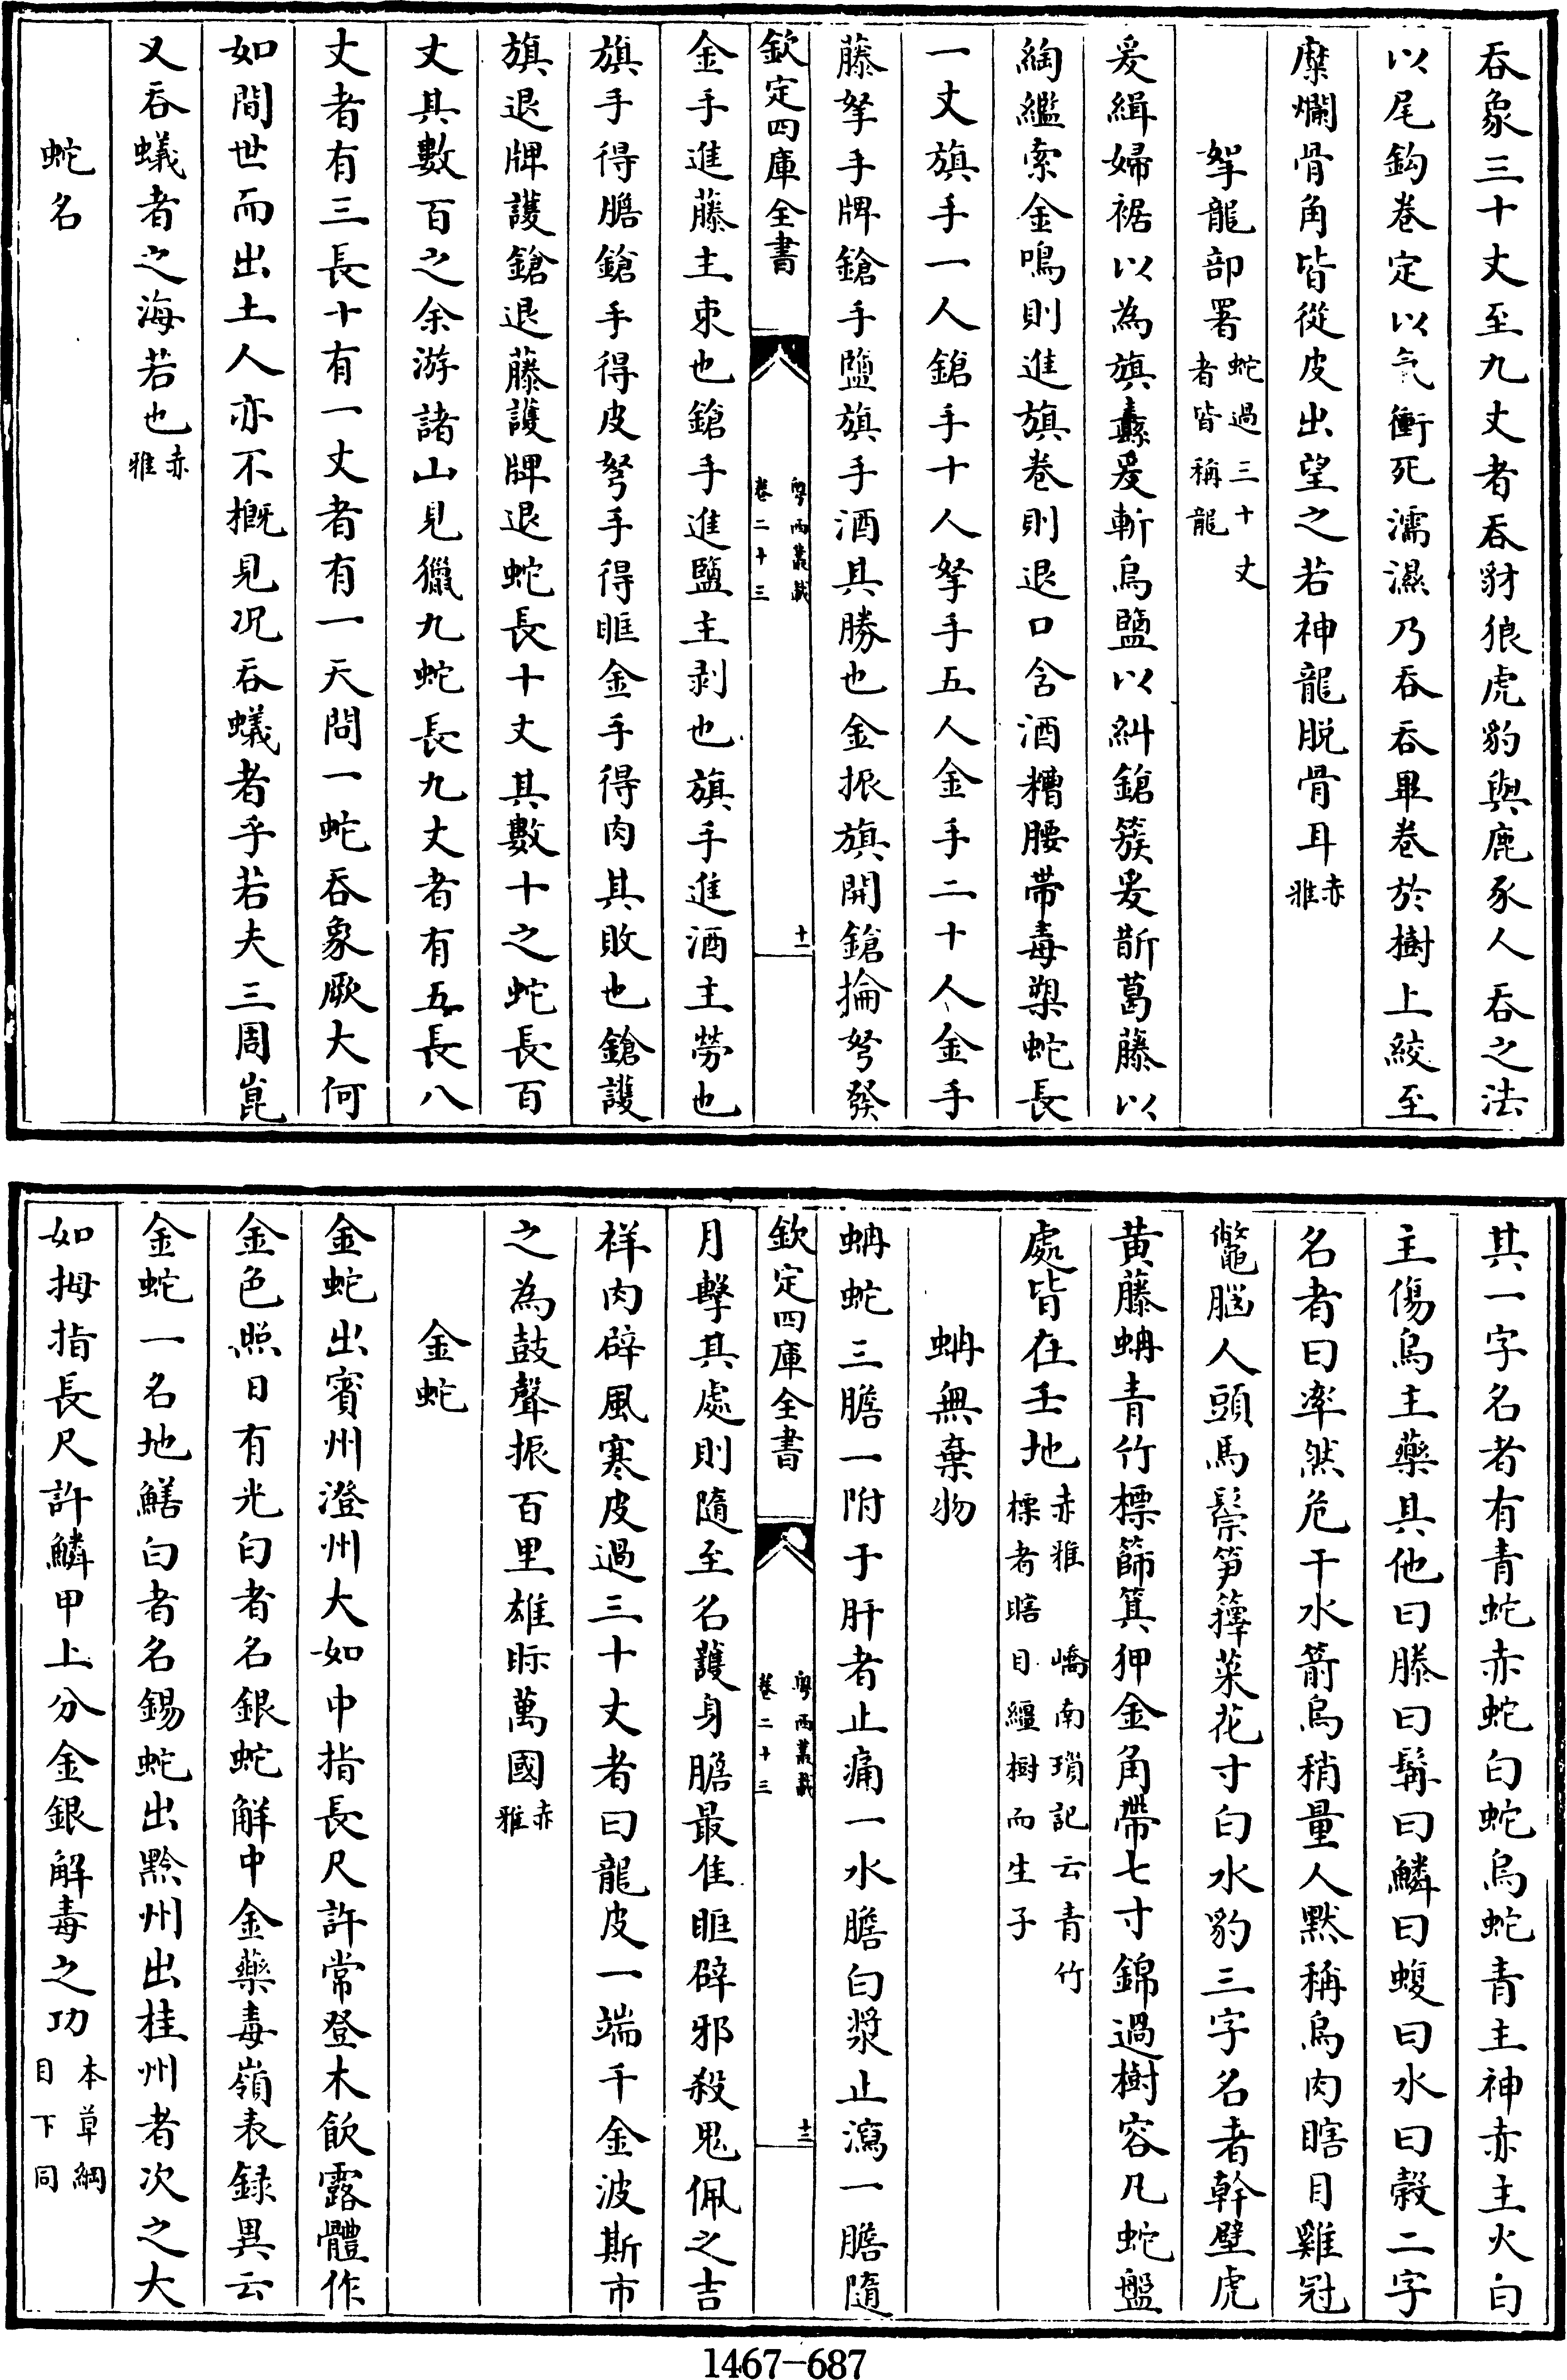 吞象三十丈至九丈者吞豺狼虎豹與鹿豕人吞之法
以尾鈎卷定以气衝死濡濕乃吞吞畢卷於樹上絞至
糜爛骨角皆從皮出望之若神龍脱骨耳赤雅
拏龍部署蛇過三十丈者皆稱龍
爰緝婦裾以為旗纛爰斬烏鹽以糾鎗簇爰斮葛藤以
綯繿索金鳴則進旗卷則退口含酒糟腰帶毒槊蛇長
一丈旗手一人鎗手十人拏手五人金手二十人金手
藤拏手牌鎗手鹽旗手酒其勝也金振旗開鎗掄弩發
欽定四庫全書
粤西叢載
卷二十三
十一
金手進藤主束也鎗手進鹽主剥也旗手進酒主勞也
旗手得膽鎗手得皮弩手得眶金手得肉其敗也鎗護
旗退牌護鎗退藤護牌退蛇長十丈其數十之蛇長百
丈其數百之余游諸山見獵九蛇長九丈者有五長八
丈者有三長十有一丈者有一天問一蛇吞象厥大何
如間世而出土人亦不槪見况吞蟻者乎若夫三周崑
又吞蟻者之海若也赤雅
蛇名
其一字名者有青蛇赤蛇白蛇烏蛇青主神赤主火白
主傷烏主藥其他曰滕曰髯曰鱗曰蝮曰水曰榖二字
名者曰率然危干水箭烏稍量人黙稱烏肉瞎目雞冠
鼈腦人頭馬鬃笋籜菜花寸白水豹三字名者幹壁虎
黄藤蚺青竹標篩箕狎金角帶七寸錦過樹容凡蛇盤
處皆在壬地赤雅 嶠南瑣記云青竹標者瞎目纏樹而生子
蚺無棄物
蚺蛇三膽一附于肝者止痛一水膽白漿止瀉一膽隨
欽定四庫全書
粤西叢載
卷二十三
十二
月擊其處則隨至名護身膽最隹眶辟邪殺鬼佩之吉
祥肉辟風寒皮過三十丈者曰龍皮一端千金波斯市
之為鼓聲振百里雄眎萬國赤雅
金蛇
金蛇出賓州澄州大如中指長尺許常登木飲露體作
金色照日有光白者名銀蛇解中金藥毒嶺表録異云
金蛇一名地鱔白者名錫蛇出黔州出桂州者次之大
如拇指長尺許鱗甲上分金銀解毒之功本草綱目下同
1467-687